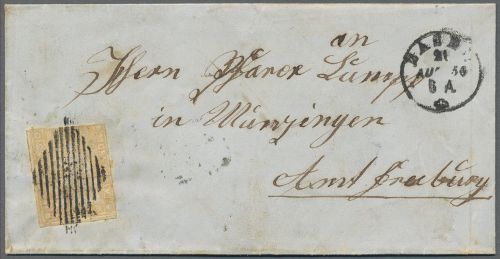 an
Herrn Pfarer Lump
in Munzingen
Amt Freiburg
21
AUG 56
6 A.